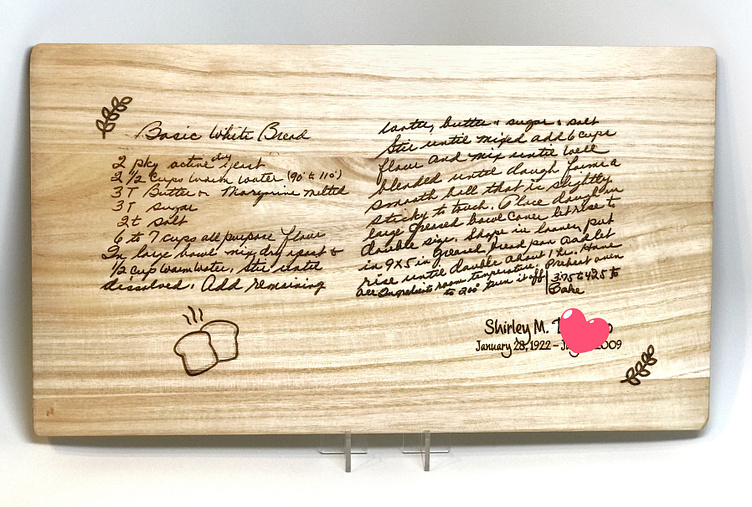 Basic White Bread
2 pkg active dry yeast
2 1/2 cups warm water (90° to 110°)
3T Butter or Margarine melted
3T sugar
2t salt
6 to 7 cups all purpose flour
In large bowl mix dry yeast &
1/2 cup warm water, stir until
dissolved. Add remaining
water, butter, sugar & salt
Stir until mixed add 6 cups
flour and mix until well
blended until dough forms a
smooth ball that is slightly
sticky to touch. Place dough in
large greased bowl cover let rise to
double size. Shape in loaves, put
in 9x5 in greased bread pan and let
rise until double about 1 hr. Have
all ingredients room temperature. Preheat oven
to 200° turn it off 375 to 425 to
Bake
Shirley M.
January 28, 1922 – 2009